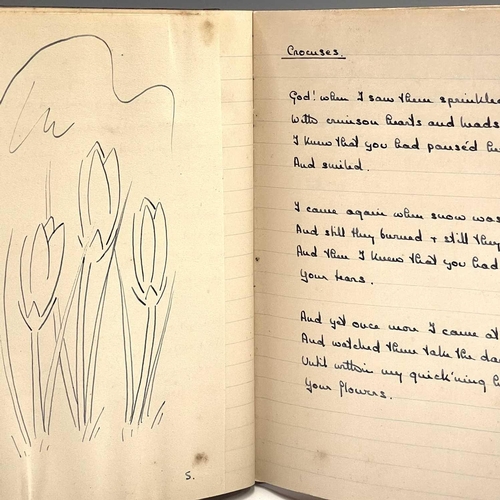 S.
Crocuses.
God! when I saw them sprinkled
With crimson hearts and heads
I knew that you had paused
And smiled.
I came again when snow was
And still they burned + still they
And then I knew that you had
Your tears.
And yet once more I came at
And watched them take the
Until within my quick'ning
Your flowers.